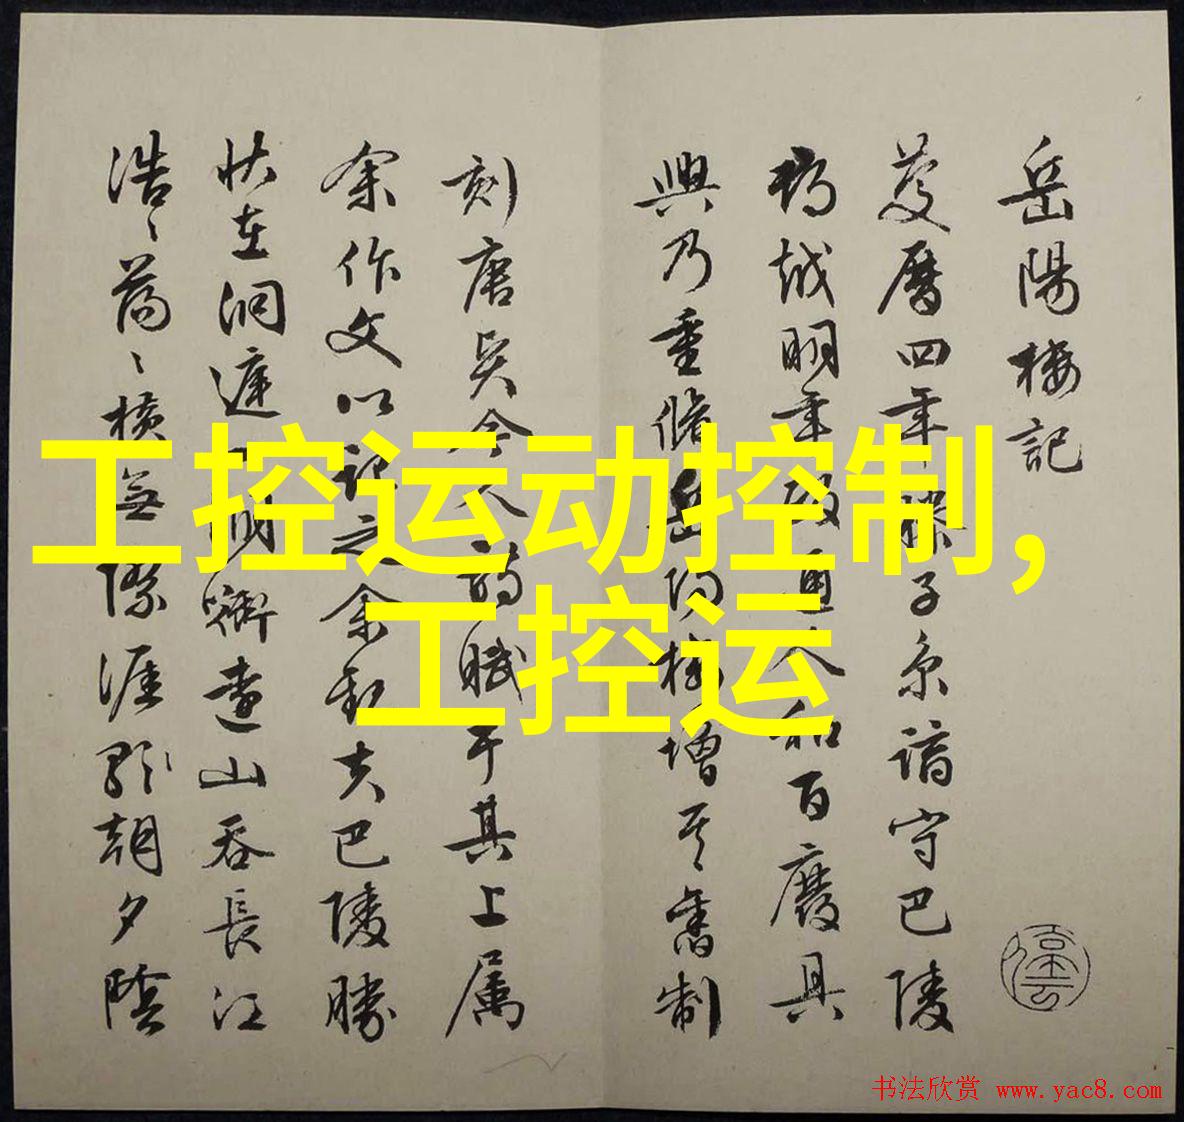 岳陽樓記
慶曆四年滕子京謫守巴陵
郡越明年政通人和百廢具
興乃重脩岳陽樓增其舊制
刻唐賢今人詩賦于其上屬
余作文以記之余觀夫巴陵勝
狀在洞庭一湖銜遠山吞長江
浩〻蕩〻橫無際涯朝夕陰
工控运动控制,
工控运
书法欣赏 www.yac8.com